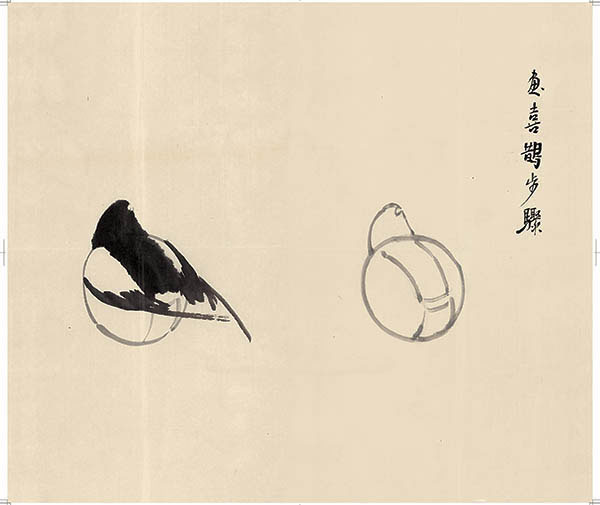 画喜鹊步骤